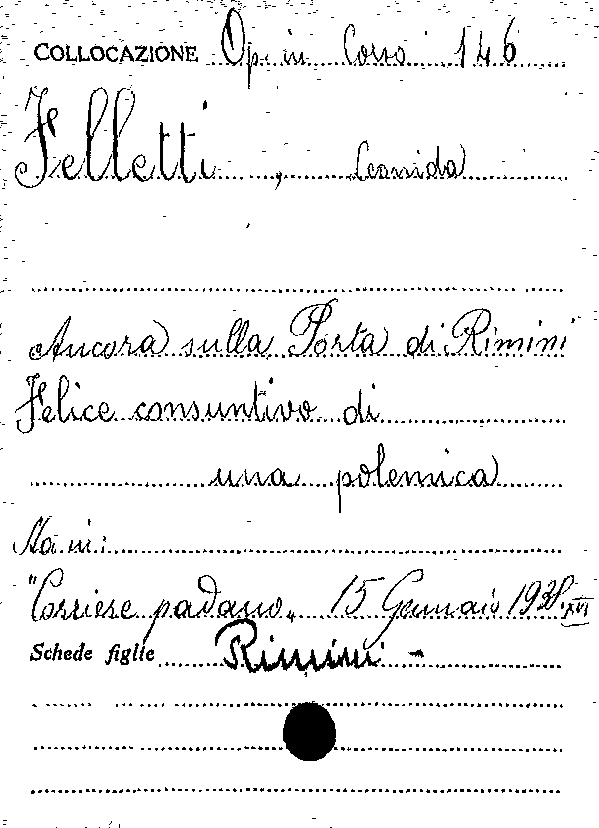 COLLOCAZIONE Op. in Corso 146
Felletti, Leonida
Ancora sulla Porta di Rimini
Felice consuntivo di
una polemica
Sta in:
"Corriere padano" 15 Gennaio 1938 XVI
Schede figlie Rimini -